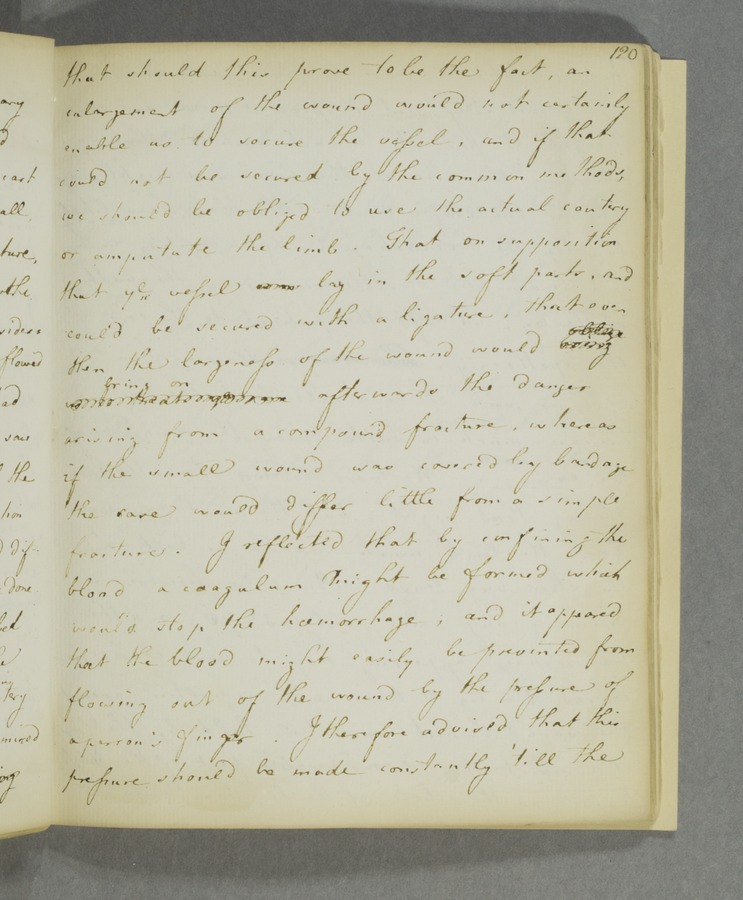 120
that should this prove to be the fact, an
enlargement of the wound would not certainly
enable us to secure the vessel, and if that
could not be secured by the common methods,
we should be obliged to use the actual cautery
or amputate the limb. That on supposition
that ye vessel lay in the soft parts, and
could be secured with a ligature, that even
then the largeness of the wound would
bring on
afterwards the danger
arising from a compound fracture, whereas
if the small wound was covered by bandage
the case would differ little from a simple
fracture. I reflected that by confining the
blood a coagulum might be formed which
would stop the hæmorrhage; and it appeared
that the blood might easily be prevented from
flowing out of the wound by the pressure of
a person's finger. I therefore advised that this
pressure should be made constantly 'till the